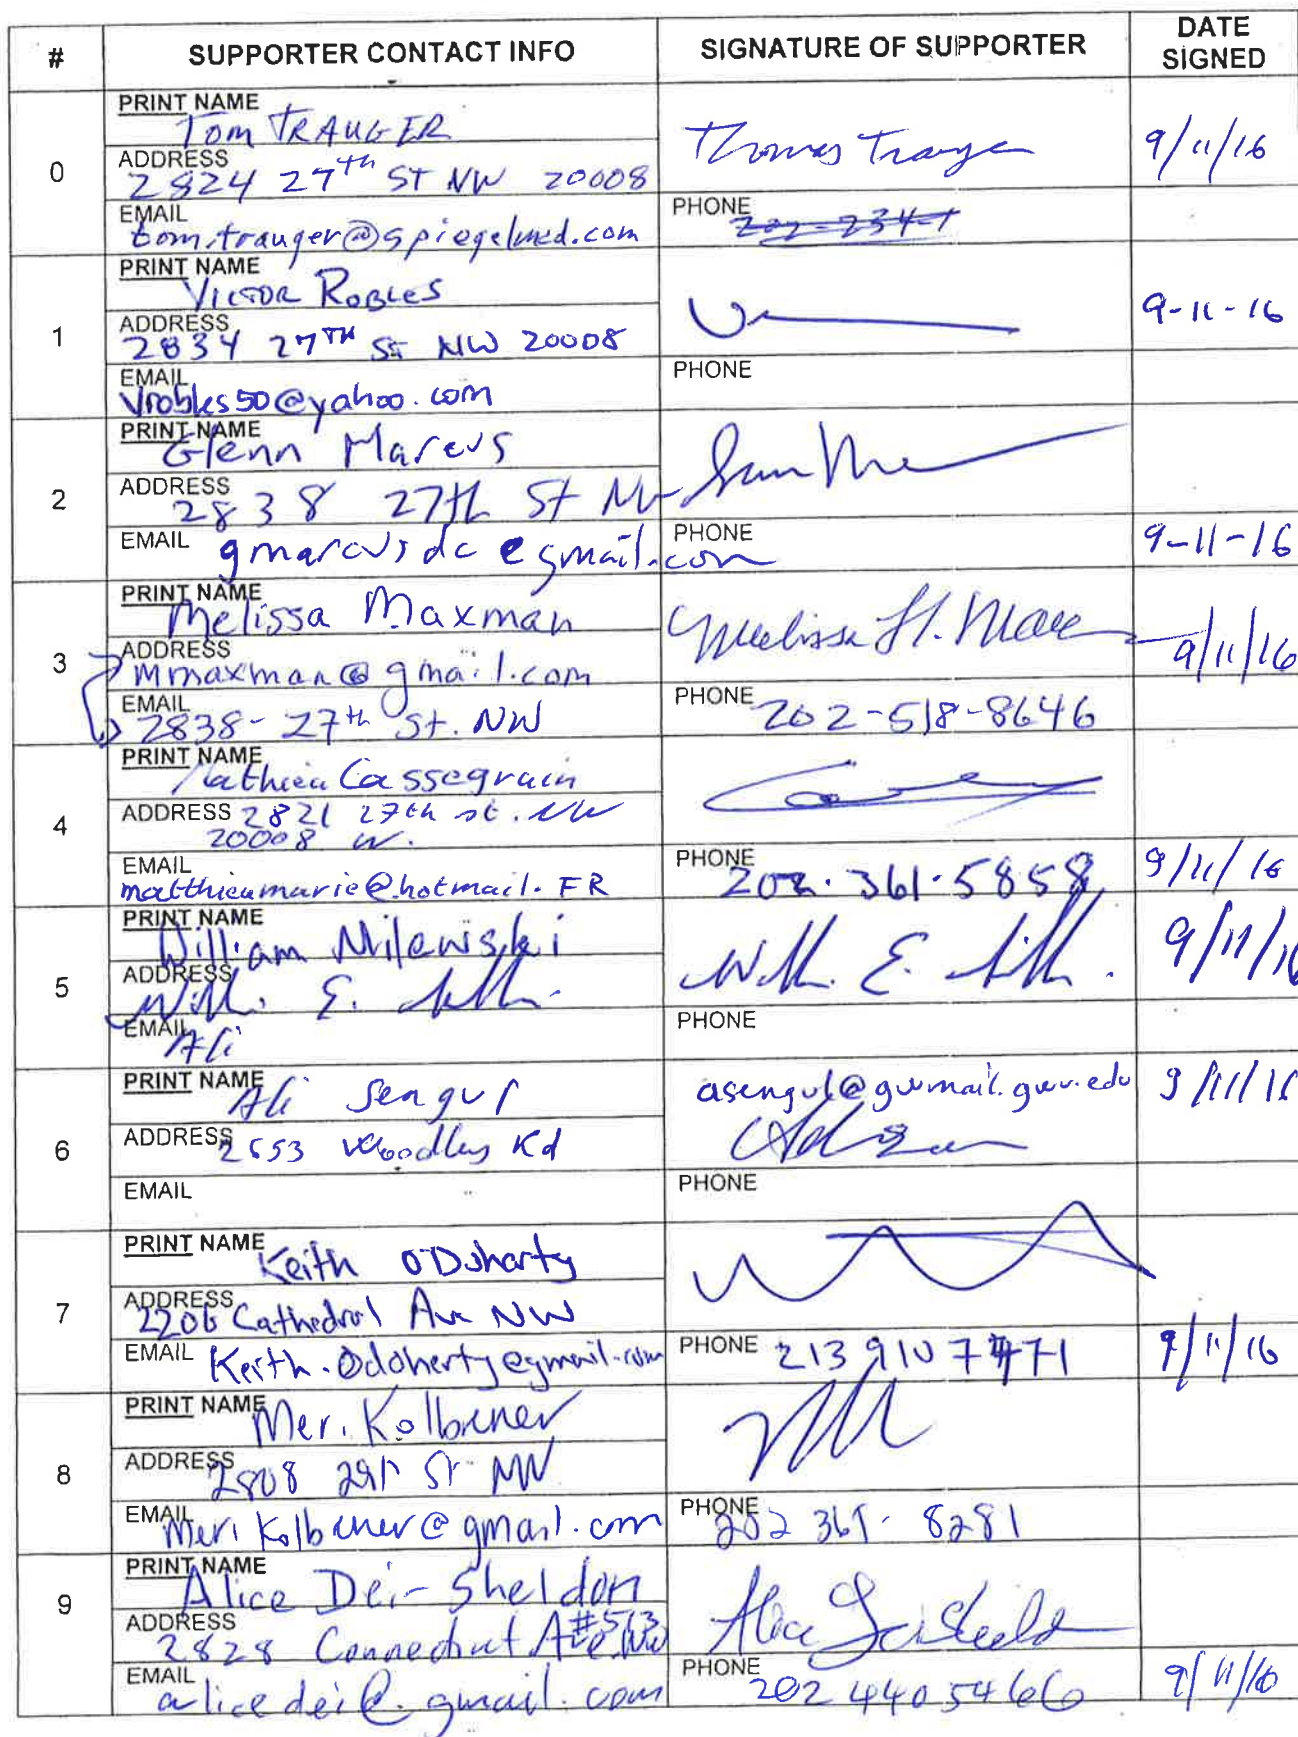 # SUPPORTER CONTACT INFO SIGNATURE OF SUPPORTER DATE SIGNED
0
PRINT NAME Tom TRAUGER
Thomas Trauger 9/11/16
ADDRESS 2824 27th ST NW 20008
EMAIL tom.trauger@spiegelmed.com
PHONE 202-234-1
1
PRINT NAME VICTOR ROBLES
9-11-16
ADDRESS 2834 27TH St NW 20008
EMAIL vrobles50@yahoo.com
PHONE
2
PRINT NAME Glenn Marcus
ADDRESS 2838 27th St NW
EMAIL gmarcusdc@gmail.com
PHONE
9-11-16
3
PRINT NAME Melissa Maxman
Melissa H. Max 9/11/16
ADDRESS mmaxman@gmail.com
EMAIL 2838-27th St. NW
PHONE 202-518-8646
4
PRINT NAME Mathieu Cassegrain
ADDRESS 2821 27th st. NW
20008 W.
EMAIL matthieumarie@hotmail.FR
PHONE 202.361.5858
9/11/16
5
PRINT NAME William Milewski
9/11/16
ADDRESS
EMAIL Ali
PHONE
6
PRINT NAME Ali Sengul
asengul@gwmail.gwu.edu 9/11/16
ADDRESS 2653 Woodley Rd
EMAIL
PHONE
7
PRINT NAME Keith O'Doharty
ADDRESS 2206 Cathedral Ave NW
EMAIL Keith.Odoherty@gmail.com
PHONE 213 910 7471
9/11/16
8
PRINT NAME Meri Kolbrener
ADDRESS 2808 29th St NW
EMAIL Meri Kolbrener@gmail.com
PHONE 202 361-8281
9
PRINT NAME Alice Dei-Sheldon
ADDRESS 2828 Connecticut Ave NW #513
EMAIL alicedei@.gmail.com
PHONE 202 440 5466
9/11/16